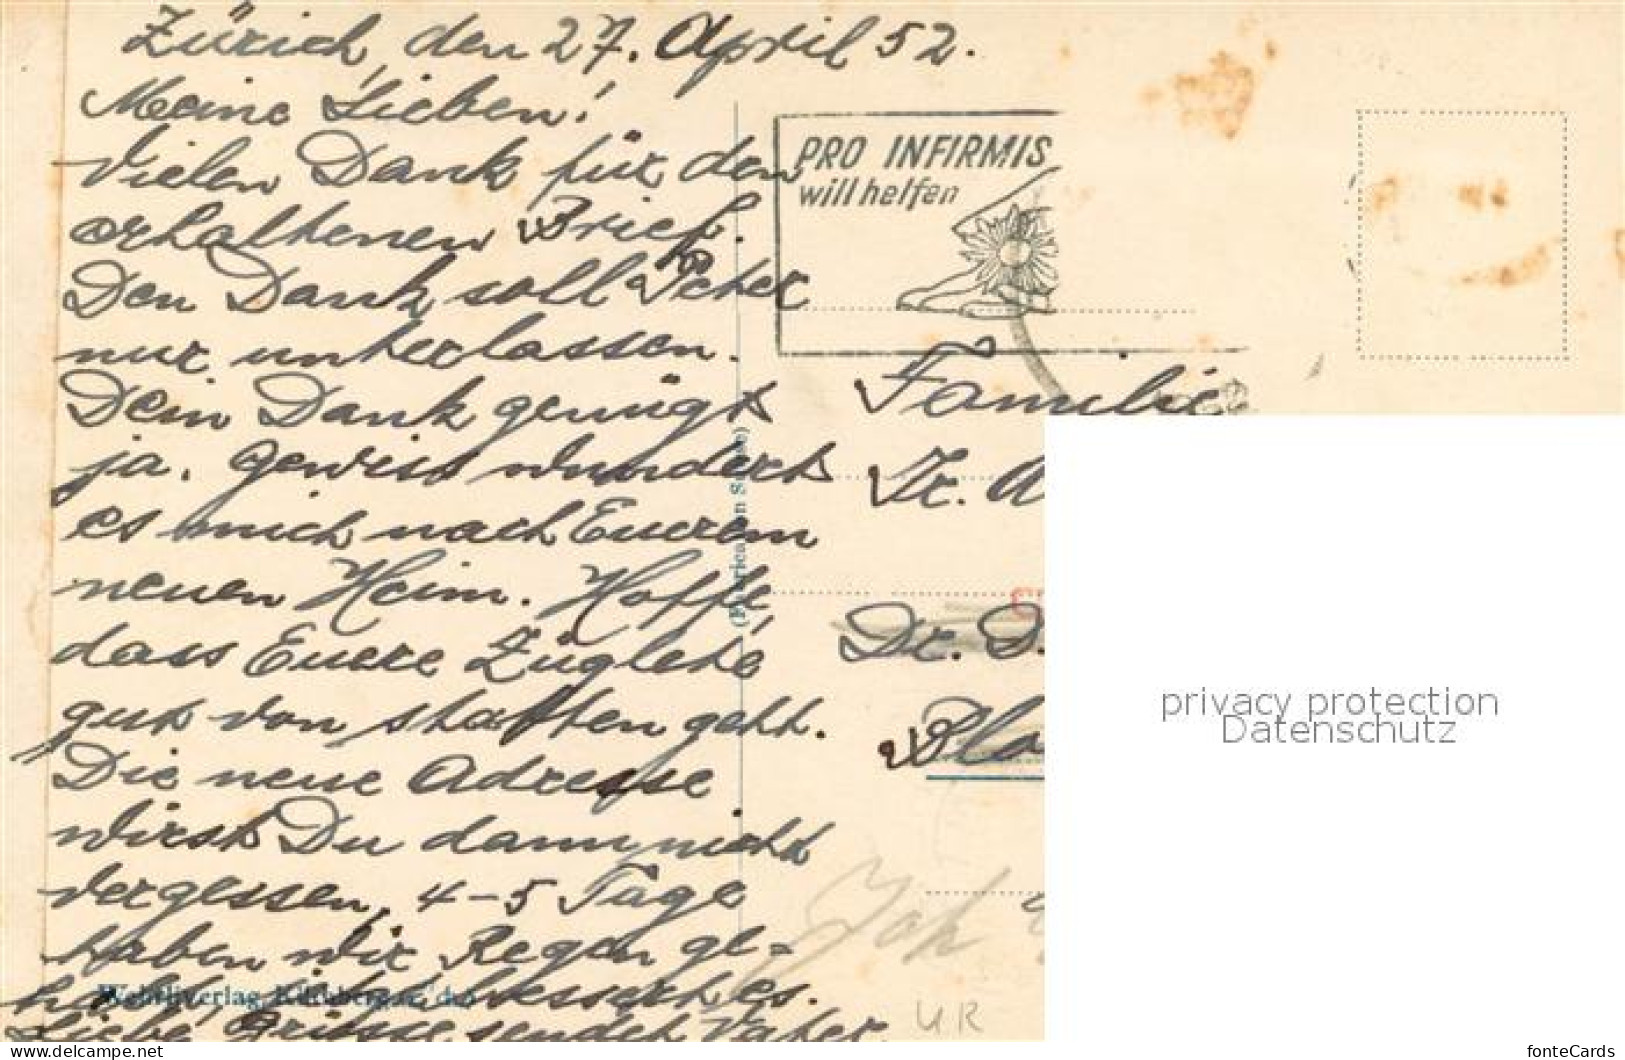 Zürich, den 27. April 52.
Meine Lieben!
Vielen Dank für den
erhaltenen Brief.
Den Dank soll Peter
nur unterlassen.
Dein Dank genügt
ja. Gewiss wundert
es mich nach Euerem
neuen Heim. Hoffe,
dass Euere Züglete
gut von statten geht.
Die neue Adresse
wirst Du dann nicht
vergessen. 4-5 Tage
haben wir Regen ge-
habt, bessert es.
Liebe Grüsse sendet Vater
Wehrliverlag, Kilchberg
PRO INFIRMIS
will helfen
Familie
Dr.
UR
privacy protection
Datenschutz
https://www.delcampe.net
fonteCards